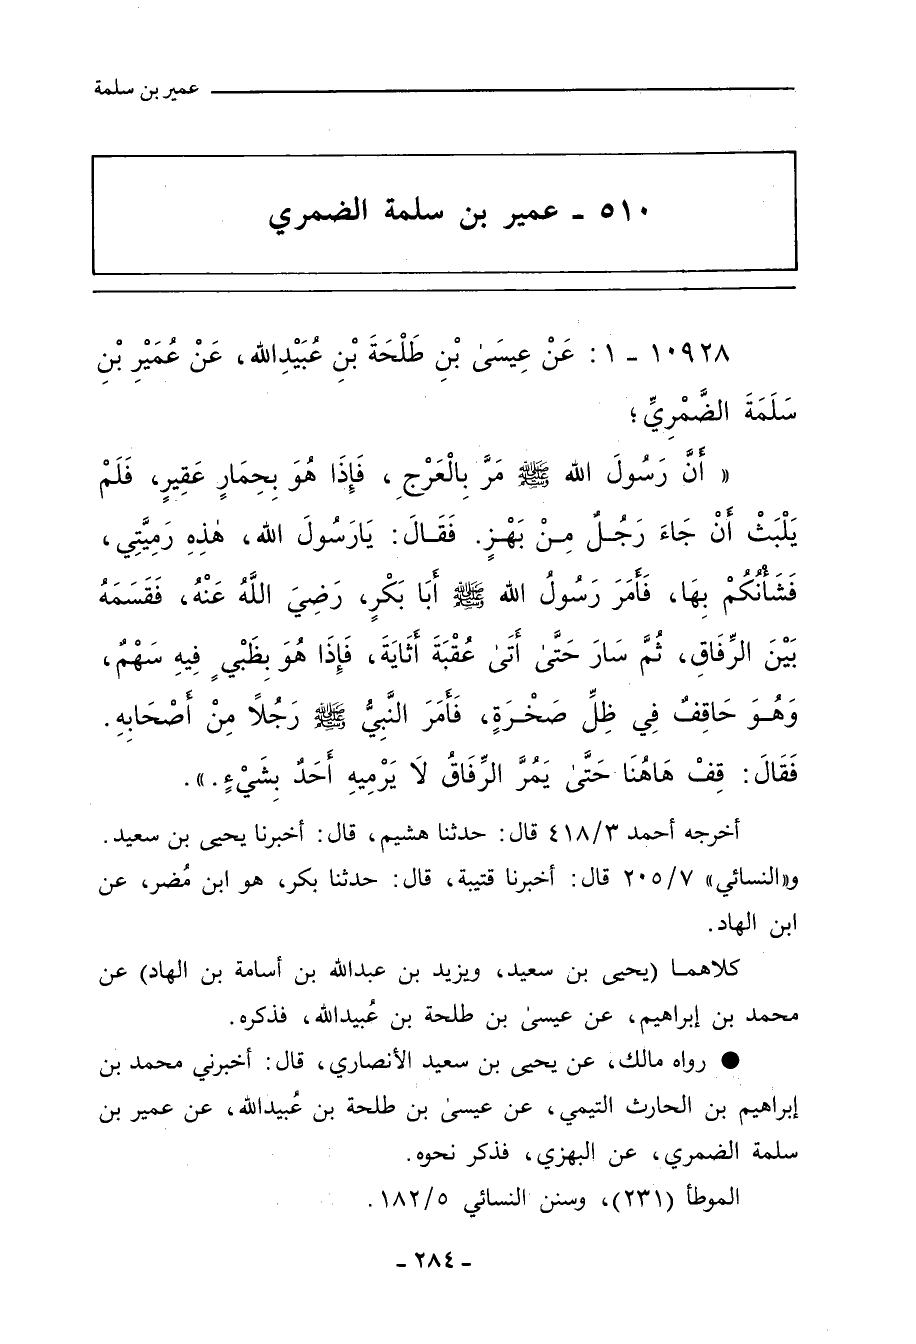 عمير بن سلمة
٥١٠ ـ عمير بن سلمة الضمري
١٠٩٢٨ ـ ١ : عَنْ عِيسَىٰ بْنِ طَلْحَةَ بْنِ عُبَيْدِالله، عَنْ عُمَيْرِ بْنِ
سَلَمَةَ الضَّمْرِيِّ؛
« أَنَّ رَسُولَ الله ﷺ مَرَّ بِالْعَرْجِ ، فَإِذَا هُوَ بِحِمَارٍ عَقِيرٍ، فَلَمْ
يَلْبَثْ أَنْ جَاءَ رَجُلٌ مِنْ بَهْزٍ. فَقَالَ: يَارَسُولَ الله، هٰذِهِ رَمِيَّتِي،
فَشَأْنُكُمْ بِهَا، فَأَمَرَ رَسُولُ الله ﷺ أَبَا بَكْرٍ، رَضِيَ اللَّهُ عَنْهُ، فَقَسَمَهُ
بَيْنَ الرِّفَاقِ، ثُمَّ سَارَ حَتَّىٰ أَتَىٰ عُقْبَةَ أَثَايَةَ، فَإِذَا هُوَ بِظَبْيٍ فِيهِ سَهْمٌ،
وَهُوَ حَاقِفٌ فِي ظِلِّ صَخْرَةٍ، فَأَمَرَ النَّبِيُّ ﷺ رَجُلًا مِنْ أَصْحَابِهِ.
فَقَالَ: قِفْ هَاهُنَا حَتَّىٰ يَمُرَّ الرِّفَاقُ لَا يَرْمِيهِ أَحَدٌ بِشَيْءٍ.».
أخرجه أحمد ٤١٨/٣ قال: حدثنا هشيم، قال: أخبرنا يحيى بن سعيد.
و«النسائي» ٢٠٥/٧ قال: أخبرنا قتيبة، قال: حدثنا بكر، هو ابن مُضر، عن
ابن الهاد.
كلاهما (يحيى بن سعيد، ويزيد بن عبدالله بن أسامة بن الهاد) عن
محمد بن إبراهيم، عن عيسىٰ بن طلحة بن عُبيدالله، فذكره.
● رواه مالك، عن يحيى بن سعيد الأنصاري، قال: أخبرني محمد بن
إبراهيم بن الحارث التيمي، عن عيسىٰ بن طلحة بن عُبيدالله، عن عمير بن
سلمة الضمري، عن البهزي، فذكر نحوه.
الموطأ (٢٣١)، وسنن النسائي ١٨٢/٥.
ـ ٢٨٤ ـ